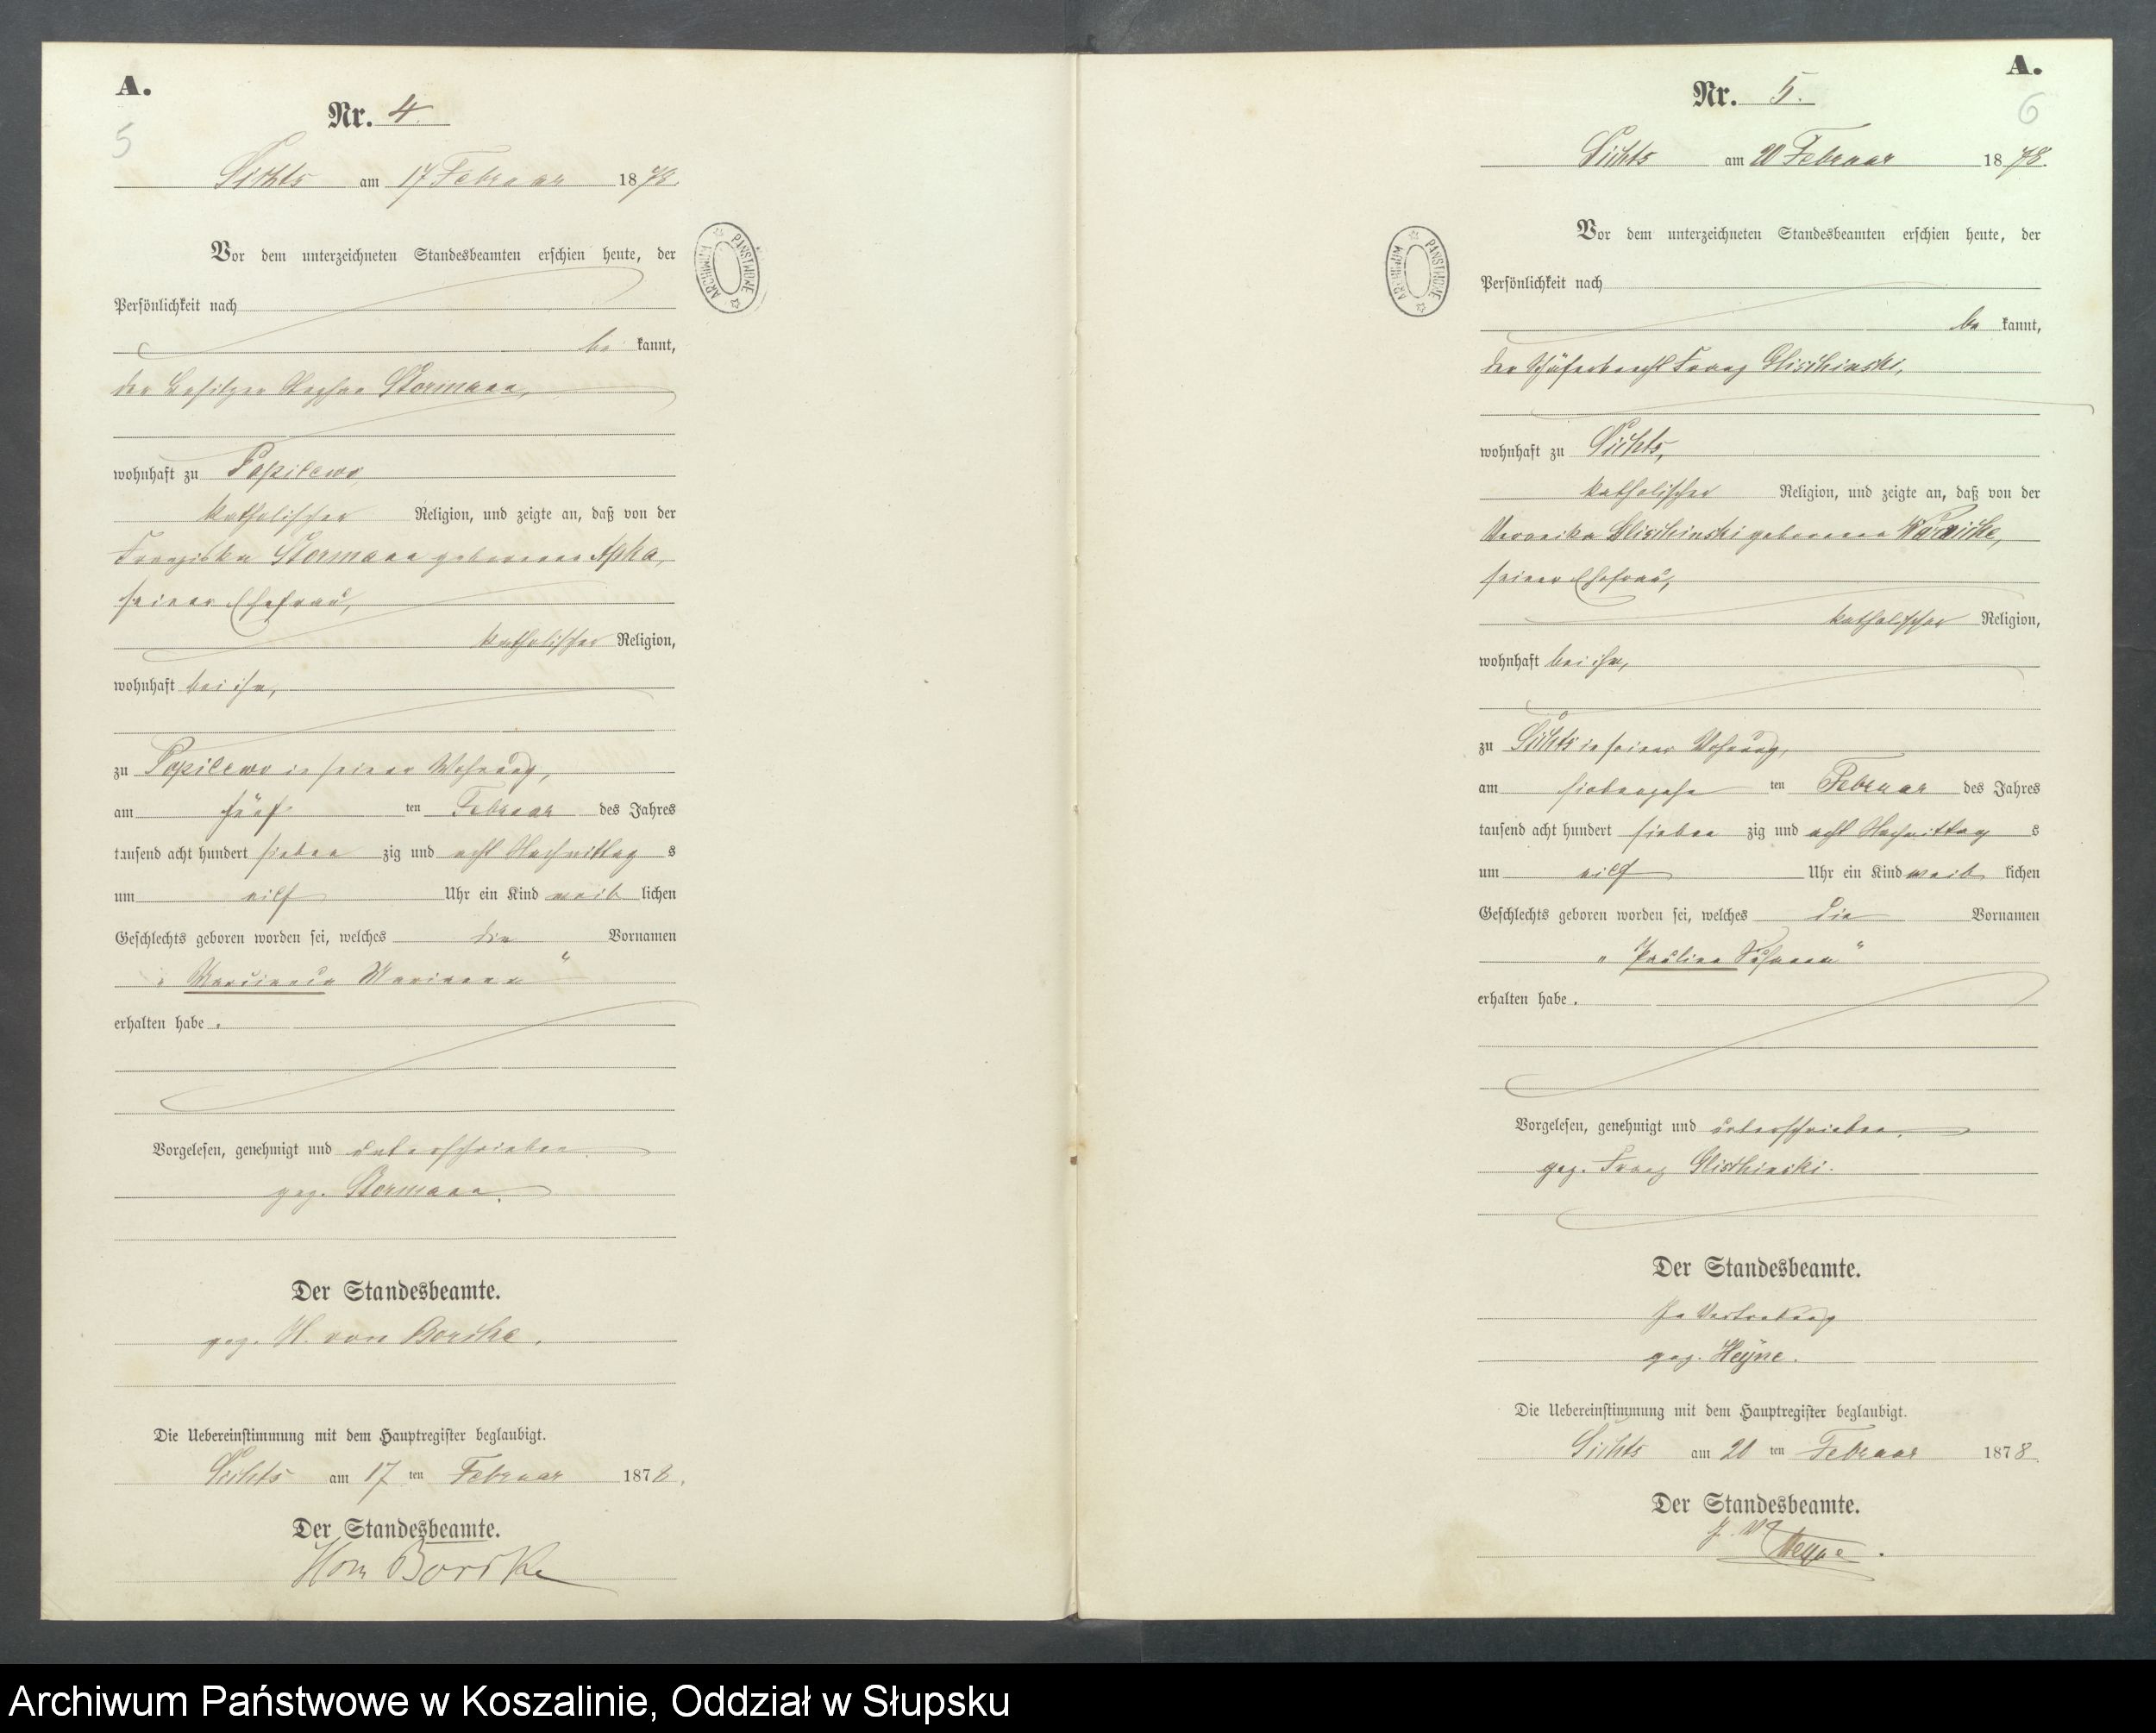 A.
5
Nr. 4.
Lichts am 17 Februar 1878.
ARCHIWUM PAŃSTWOWE
Vor dem unterzeichneten Standesbeamten erschien heute, der
Persönlichkeit nach
be kannt,
der Besitzer Stormann,
wohnhaft zu Popilewo
katholischer Religion, und zeigte an, daß von der
Franziska Stormann geborenen Apka,
seiner Ehefrau,
katholischer Religion,
wohnhaft bei ihm,
zu Popilewo in seiner Wohnung,
am fünf ten Februar des Jahres
tausend acht hundert sieben zig und acht Nachmittag s
um eilf Uhr ein Kind weib lichen
Geschlechts geboren worden sei, welches die Vornamen
„ Marianna “
erhalten habe.
Vorgelesen, genehmigt und unterschrieben.
gez. Stormann.
Der Standesbeamte.
gez. H. von Borcke.
Die Uebereinstimmung mit dem Hauptregister beglaubigt.
Lichts am 17 ten Februar 1878.
Der Standesbeamte.
Hvon Borcke
A.
6
Nr. 5.
Lichts am 20 Februar 1878.
ARCHIWUM PAŃSTWOWE
Vor dem unterzeichneten Standesbeamten erschien heute, der
Persönlichkeit nach
be kannt,
der Schäferknecht Franz Glischinski,
wohnhaft zu Lichts,
katholischer Religion, und zeigte an, daß von der
Veronika Glischinski geborenen
seiner Ehefrau,
katholischer Religion,
wohnhaft bei ihm,
zu Lichts in seiner Wohnung,
am siebenzehn ten Februar des Jahres
tausend acht hundert sieben zig und acht Nachmittag s
um eilf Uhr ein Kind weib lichen
Geschlechts geboren worden sei, welches die Vornamen
„ Pauline Johanna “
erhalten habe.
Vorgelesen, genehmigt und unterschrieben.
gez. Franz Glischinski.
Der Standesbeamte.
In Vertretung
gez. Heyne.
Die Uebereinstimmung mit dem Hauptregister beglaubigt.
Lichts am 20 ten Februar 1878.
Der Standesbeamte.
J. V. Heyne.
Archiwum Państwowe w Koszalinie, Oddział w Słupsku